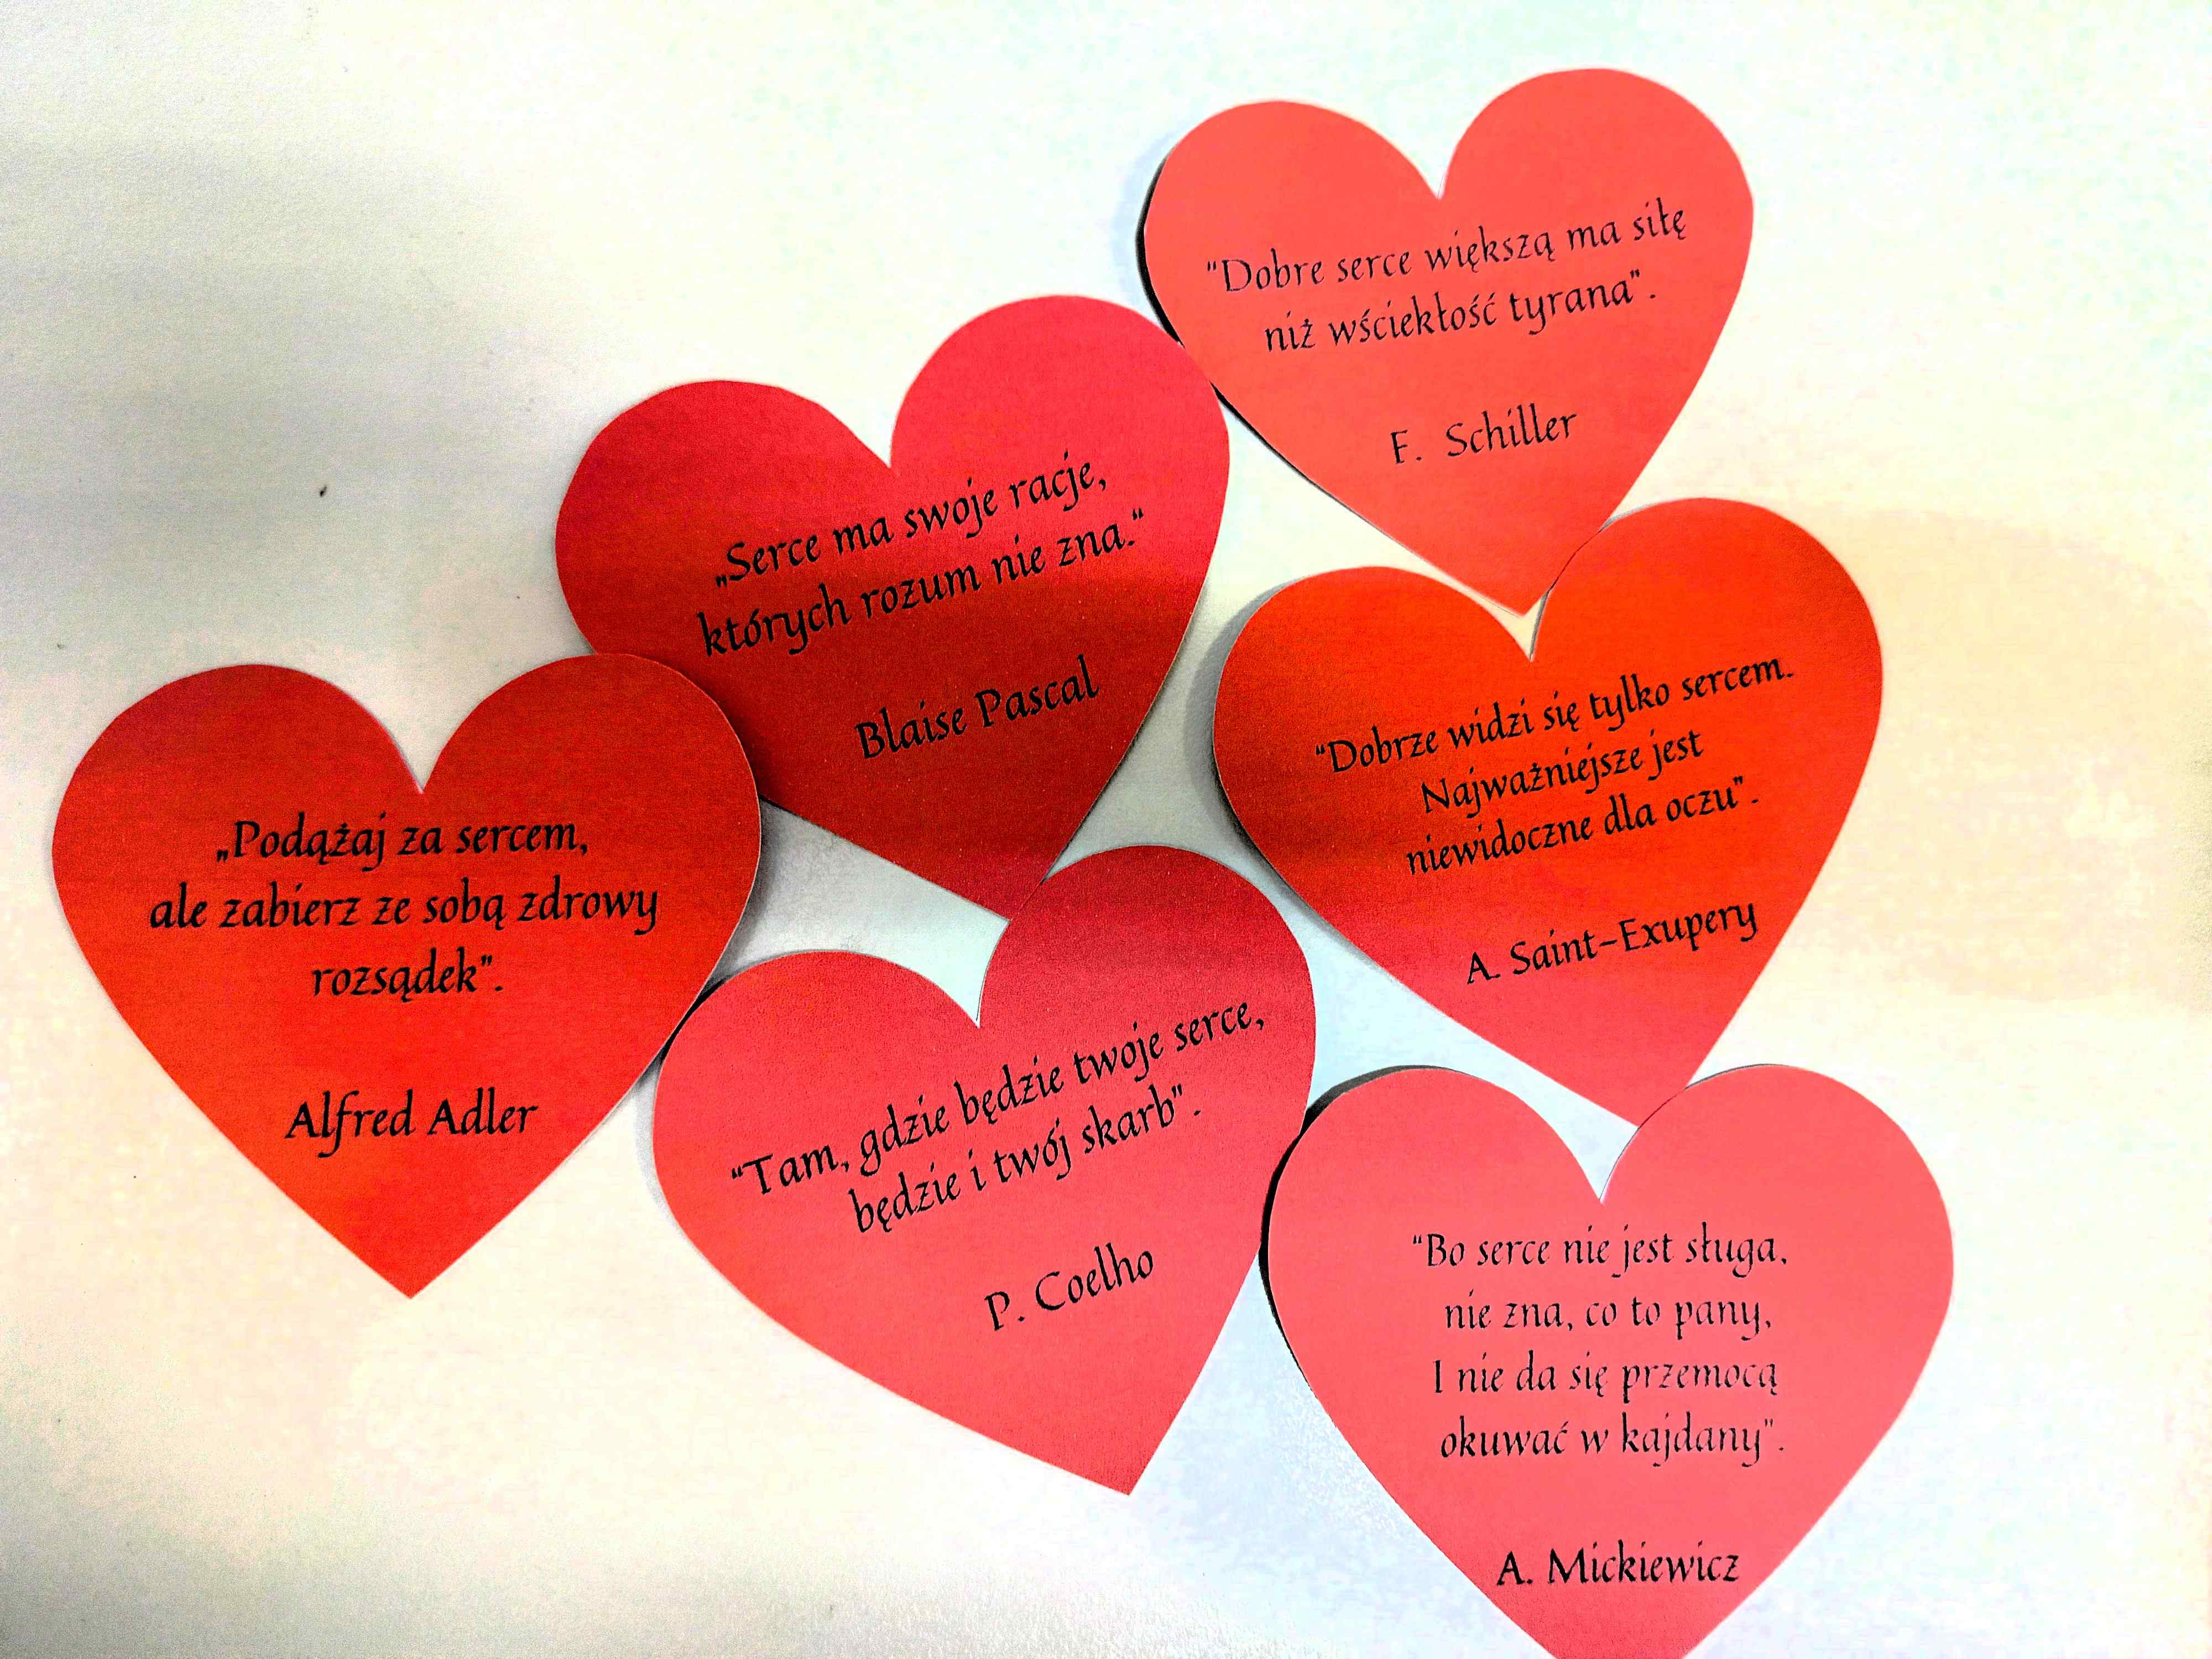 "Dobre serce większą ma siłę
niż wściekłość tyrana".
F. Schiller
„Serce ma swoje racje,
których rozum nie zna."
Blaise Pascal
"Dobrze widzi się tylko sercem.
Najważniejsze jest
niewidoczne dla oczu".
A. Saint-Exupery
„Podążaj za sercem,
ale zabierz ze sobą zdrowy
rozsądek".
Alfred Adler
"Tam, gdzie będzie twoje serce,
będzie i twój skarb".
P. Coelho
"Bo serce nie jest sługa,
nie zna, co to pany,
I nie da się przemocą
okuwać w kajdany".
A. Mickiewicz